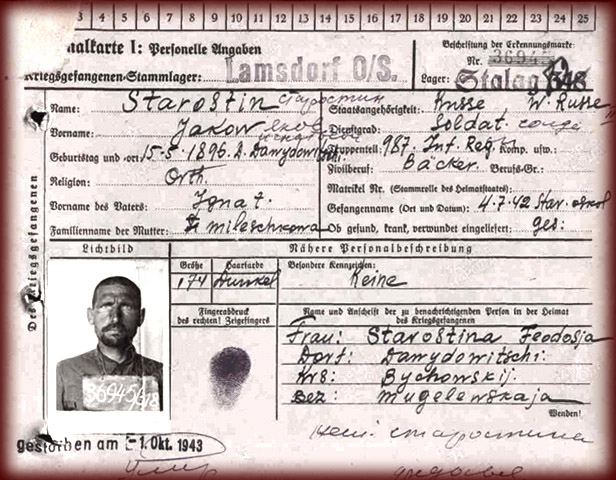 3 4 5 6 7 8 9 10 11 12 13 14 15 16 17 18 19 20 21 22 23 24 25
nalkarte I: Personelle Angaben
Kriegsgefangenen-Stammlager: Lamsdorf O/S.
Beschriftung der Erkennungsmarke:
Nr. 36945
Lager: Stalag 318
Des Kriegsgefangenen
Name: Staroštin Старостин
Vorname: Jakow Яков
Geburtstag und -ort: 15.5.1896. D. Dawydowitschi.
Religion: Orth.
Vorname des Vaters: Ignat.
Familienname der Mutter: Smileschkowa
Staatsangehörigkeit: Russe, W. Russe
Dienstgrad: Soldat. солд
Truppenteil: 987. Inf. Reg. Komp. usw.:
Zivilberuf: Bäcker. Berufs-Gr.:
Matrikel Nr. (Stammrolle des Heimatstaates):
Gefangenname (Ort und Datum): 4.7.42 Star. oskol
Ob gesund, krank, verwundet eingeliefert: ges:
Lichtbild
Nähere Personalbeschreibung
Größe Haarfarbe Besondere Kennzeichen:
174 Dunkel Keine
Fingerabdruck
des rechten! Zeigefingers
Name und Anschrift der zu benachrichtigenden Person in der Heimat
des Kriegsgefangenen
Frau: Staroština Feodosja
Dorf: Dawydowitschi.
Krs: Bychowskij.
Bez: Mugelewskaja
Wenden!
36945/318
gestorben am -1. Okt. 1943
Умер
старостина